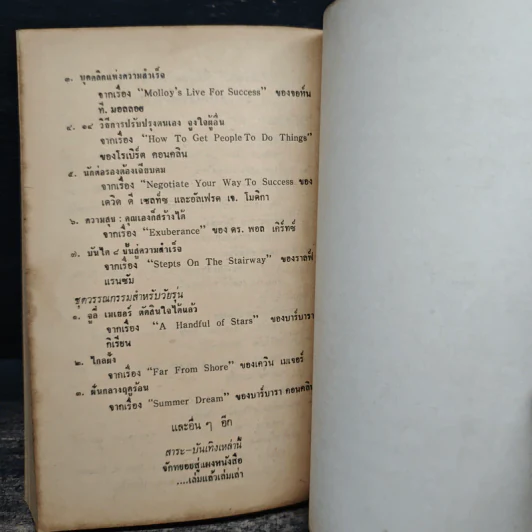 ๓. บุคคลิคแห่งความสำเร็จ
จากเรื่อง "Molloy's Live For Success" ของจอห์น
ที. มอลลอย
๔. ๑๔ วิธีการปรับปรุงตนเอง จูงใจผู้อื่น
จากเรื่อง "How To Get People To Do Things"
ของโรเบิร์ต คอนคลิน
๕. นักต่อรองต้องเฉียบคม
จากเรื่อง "Negotiate Your Way To Success ของ
เดวิด ดี เซลท์ซ และอัลเฟรด เจ. โมดิกา
๖. ความสุข : คุณเองก์สร้างได้
จากเรื่อง "Exuberance" ของ ดร. พอล เคิร์ทซ์
๗. บันได ๘ ขั้นสู่ความสำเร็จ
จากเรื่อง "Stepts On The Stairway" ของราล์ฟ
แรนซัม
ชุดวรรณกรรมสำหรับวัยรุ่น
๑. จูลี่ เมเธอร์ ตัดสินใจได้แล้ว
จากเรื่อง "A Handful of Stars" ของบาร์บารา
กิเรียน
๒. ไกลฝั่ง
จากเรื่อง "Far From Shore" ของเควิน เมเจอร์
๓. ฝันกลางฤดูร้อน
จากเรื่อง "Summer Dream" ของบาร์บารา คอนคลิน
และอื่น ๆ อีก
สาระ-บันเทิงเหล่านี้
จักทยอยสู่แผงหนังสือ
....เล่มแล้วเล่มเล่า